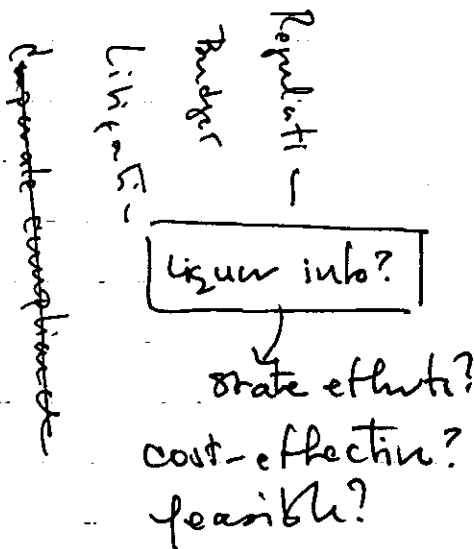 Regulati-
Budget
Litigati-
Corporate compliance
liquor info?
state efforts?
cost-effective?
feasible?